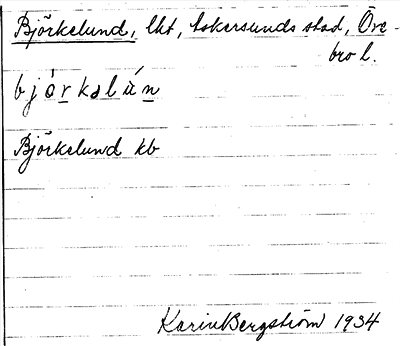 Björkelund, lht, Askersunds stad, Öre-
bro l.
bjö́rkəlú́n
Björkelund kb
Karin Bergström 1934